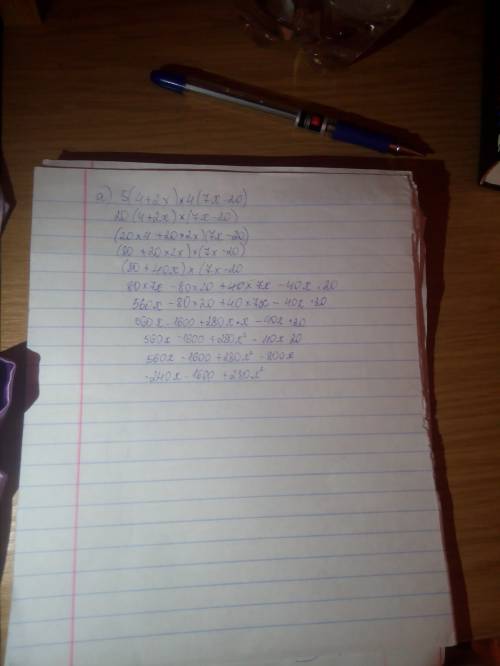 a) 5(4+2x)×4(7x-20)
20(4+2x)×(7x-20)
(20×4+20×2x)(7x-20)
(80+20×2x)×(7x-20)
(80+40x)×(7x-20
80×7x-80×20+40×7x-40x·20
560x-80×20+40×7xx-40x·20
560x-1600+280x×x-40x·20
560x-1600+280x²-40x·20
560x-1600+280x²-800x
-240x-1600+280x²